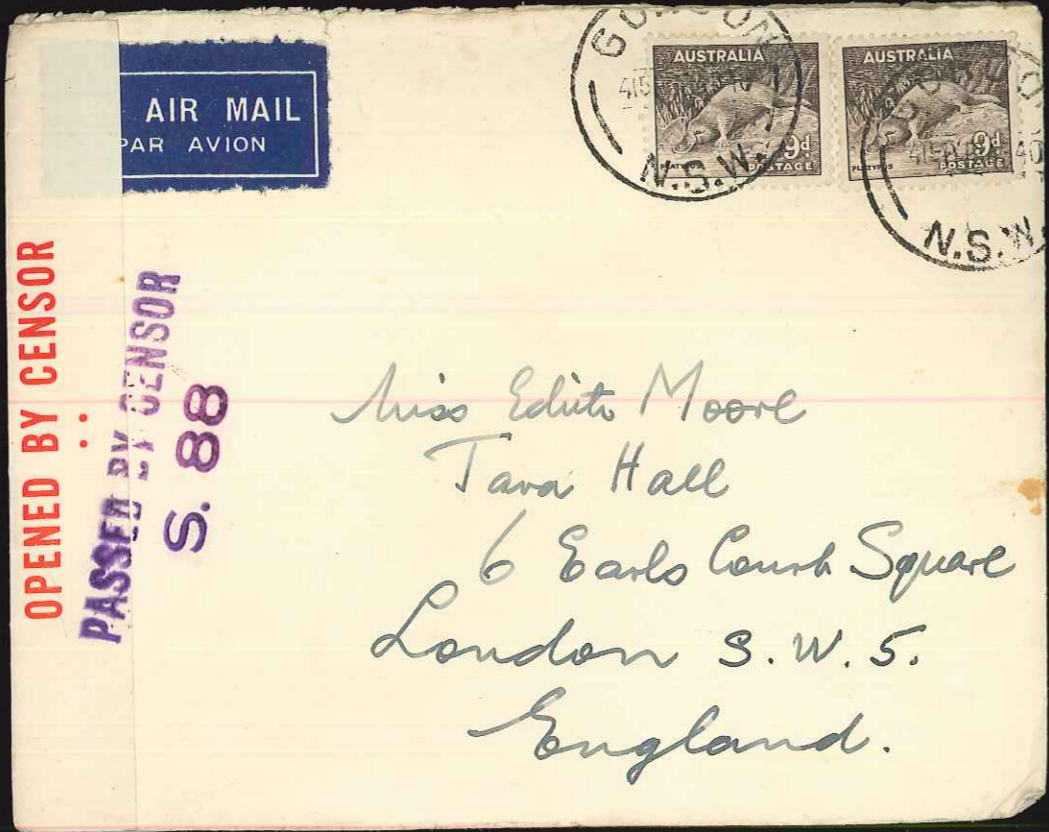 AIR MAIL
PAR AVION
AUSTRALIA
9d
PLATYPUS
POSTAGE
AUSTRALIA
9d
PLATYPUS
POSTAGE
GORDON
N.S.W.
GORDON
N.S.W.
OPENED BY CENSOR
PASSED BY CENSOR
S. 88
Miss Edith Moore
Tara Hall
6 Earls Court Square
London S.W.5.
England.